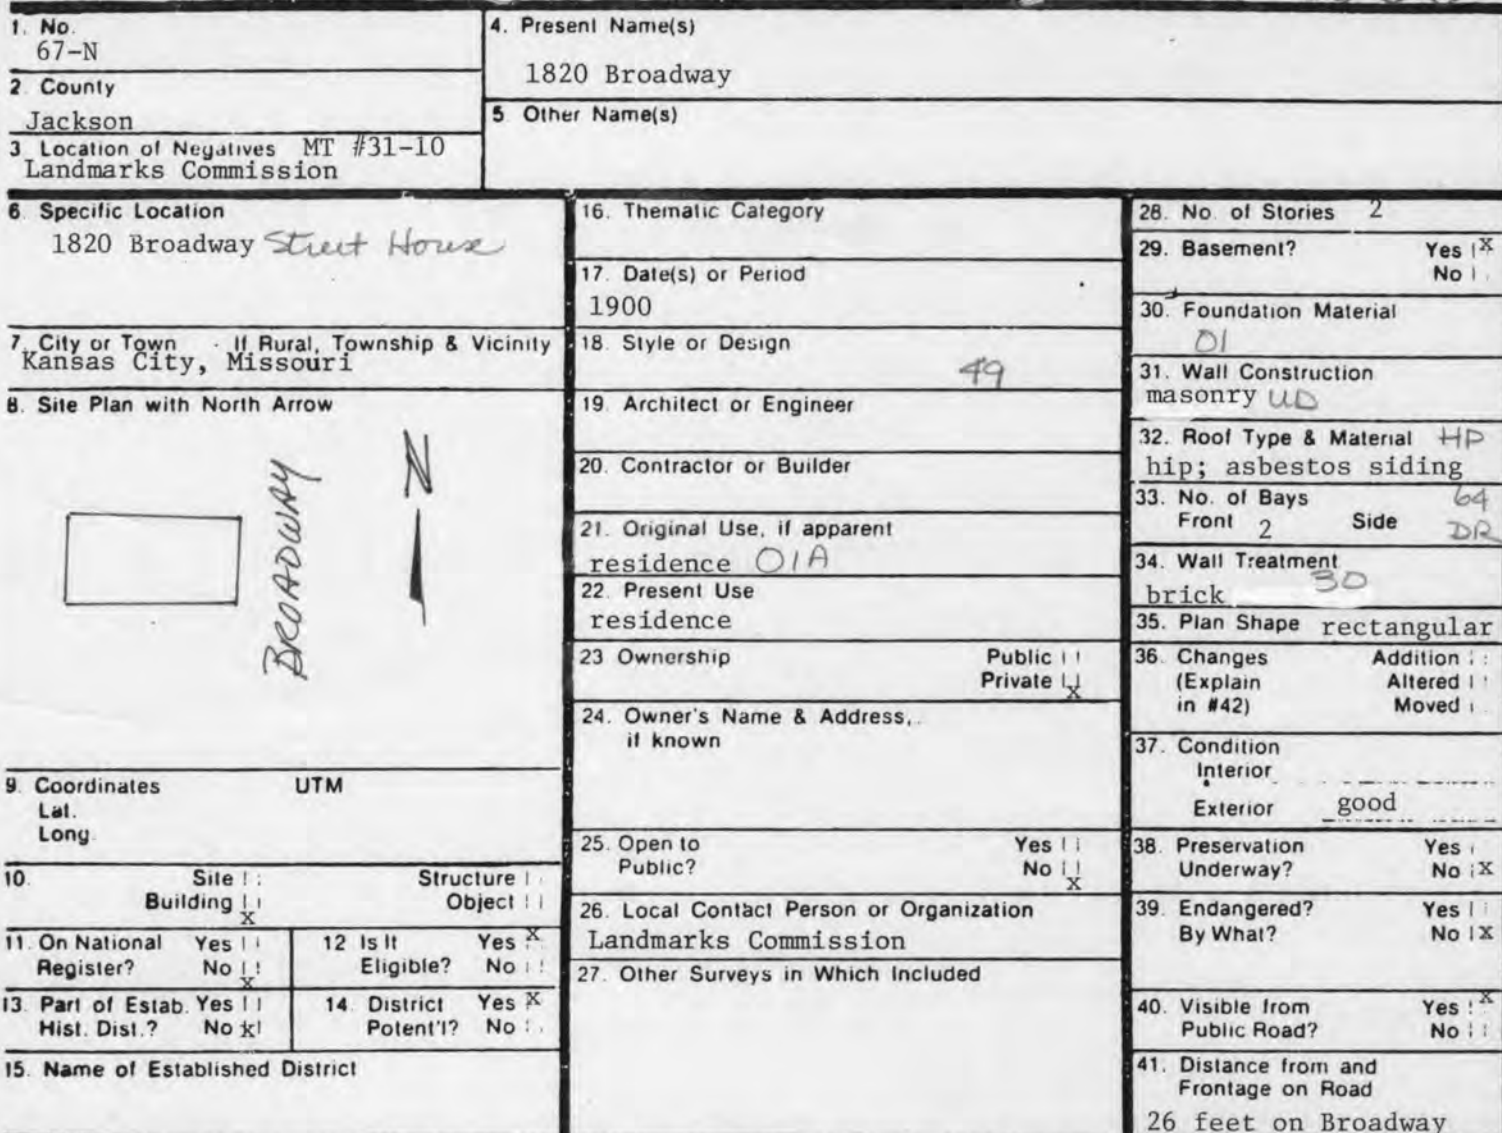 1. No.
67-N
2 County
Jackson
3 Location of Negatives MT #31-10
Landmarks Commission
4. Present Name(s)
1820 Broadway
5 Other Name(s)
6. Specific Location
1820 Broadway Street House
7. City or Town If Rural, Township & Vicinity
Kansas City, Missouri
8. Site Plan with North Arrow
BROADWAY
N
9. Coordinates UTM
Lat.
Long.
10. Site Structure
Building X Object
11. On National Yes
Register? No X
12 Is It Yes X
Eligible? No
13. Part of Estab. Yes
Hist. Dist.? No x
14. District Yes X
Potent'l? No
15. Name of Established District
16. Thematic Category
17. Date(s) or Period
1900
18. Style or Design
49
19. Architect or Engineer
20. Contractor or Builder
21. Original Use, if apparent
residence 01A
22. Present Use
residence
23 Ownership Public
Private X
24. Owner's Name & Address,
if known
25. Open to Yes
Public? No X
26. Local Contact Person or Organization
Landmarks Commission
27. Other Surveys in Which Included
28. No. of Stories 2
29. Basement? Yes X
No
30. Foundation Material
01
31. Wall Construction
masonry UD
32. Roof Type & Material HP
hip; asbestos siding
33. No. of Bays 64
Front 2 Side DR
34. Wall Treatment
brick 30
35. Plan Shape rectangular
36. Changes Addition
(Explain Altered
in #42) Moved
37. Condition
Interior
Exterior good
38. Preservation Yes
Underway? No X
39. Endangered? Yes
By What? No X
40. Visible from Yes X
Public Road? No
41. Distance from and
Frontage on Road
26 feet on Broadway